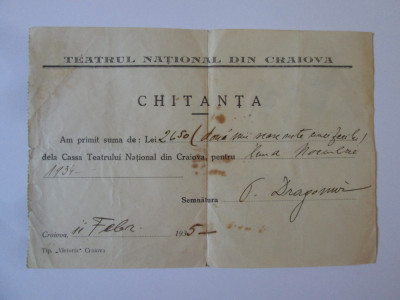 TEATRUL NAȚIONAL DIN CRAIOVA
CHITANȚA
Am primit suma de : Lei 2650 (două mii
dela Casa Teatrului Național din Craiova, pentru luna Noembrie
1934
Semnătura P. Dragomir
Craiova, 11 Febr. 1935
Tip. „Victoria" Craiova